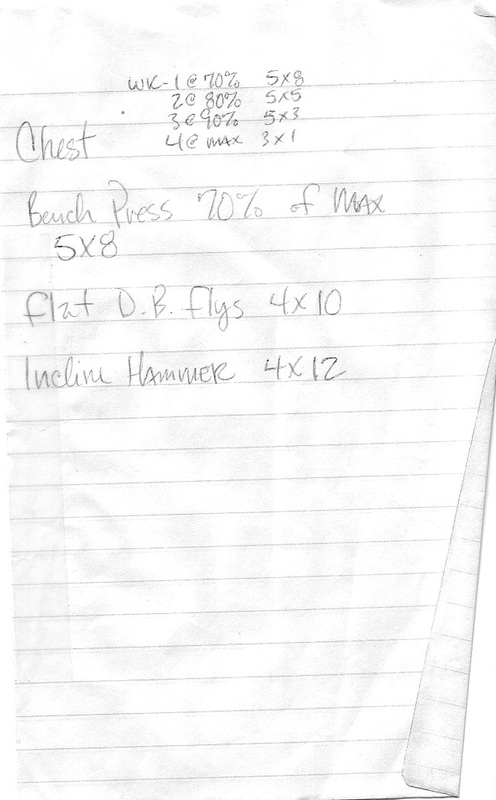 WK-1 @ 70% 5x8
2@ 80% 5x5
3@ 90% 5x3
4@ MAX 3x1
Chest
Bench Press 70% of MAX
5x8
Flat D.B. flys 4x10
Incline HAMMER 4x12